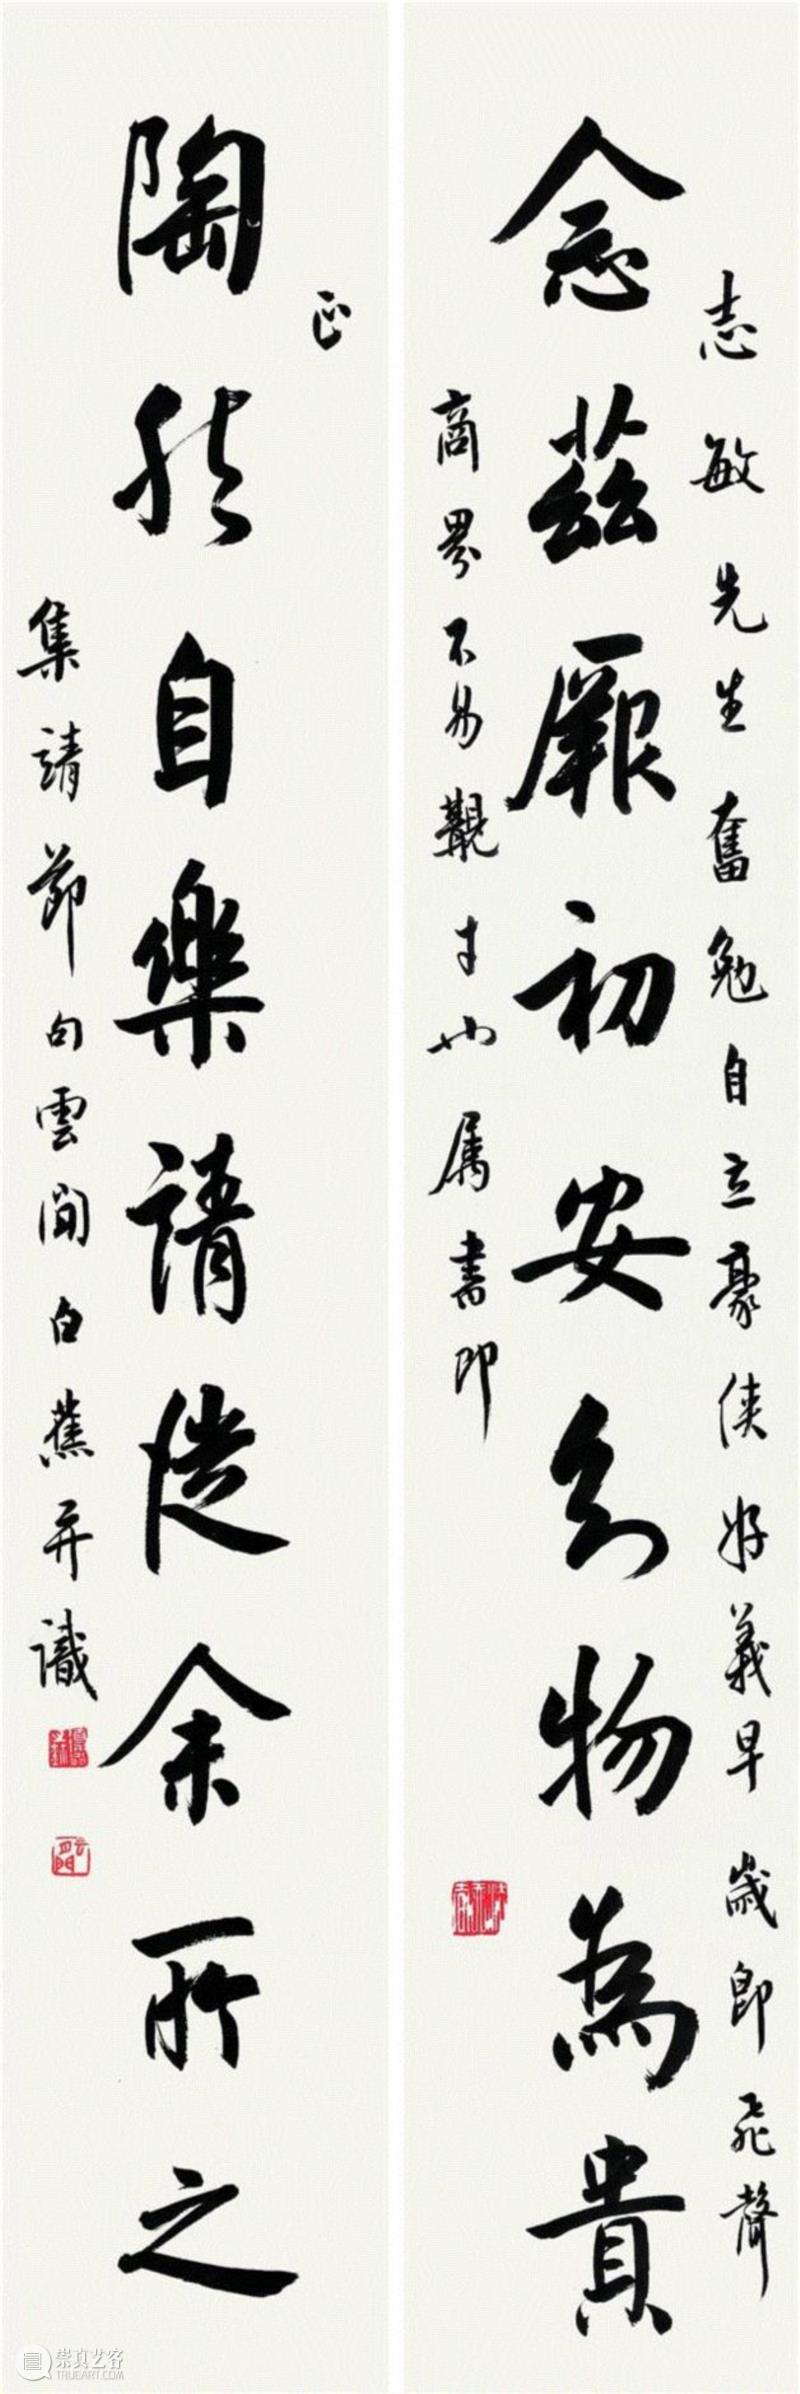 志敏先生奮勉自立豪俠好義早歲即飛聲
念茲厥初安知物為貴
商界不易覯才也属書即
正
陶然自樂請從余所之
集靖節句雲間白蕉并識
崇真艺客
TRUEART.COM